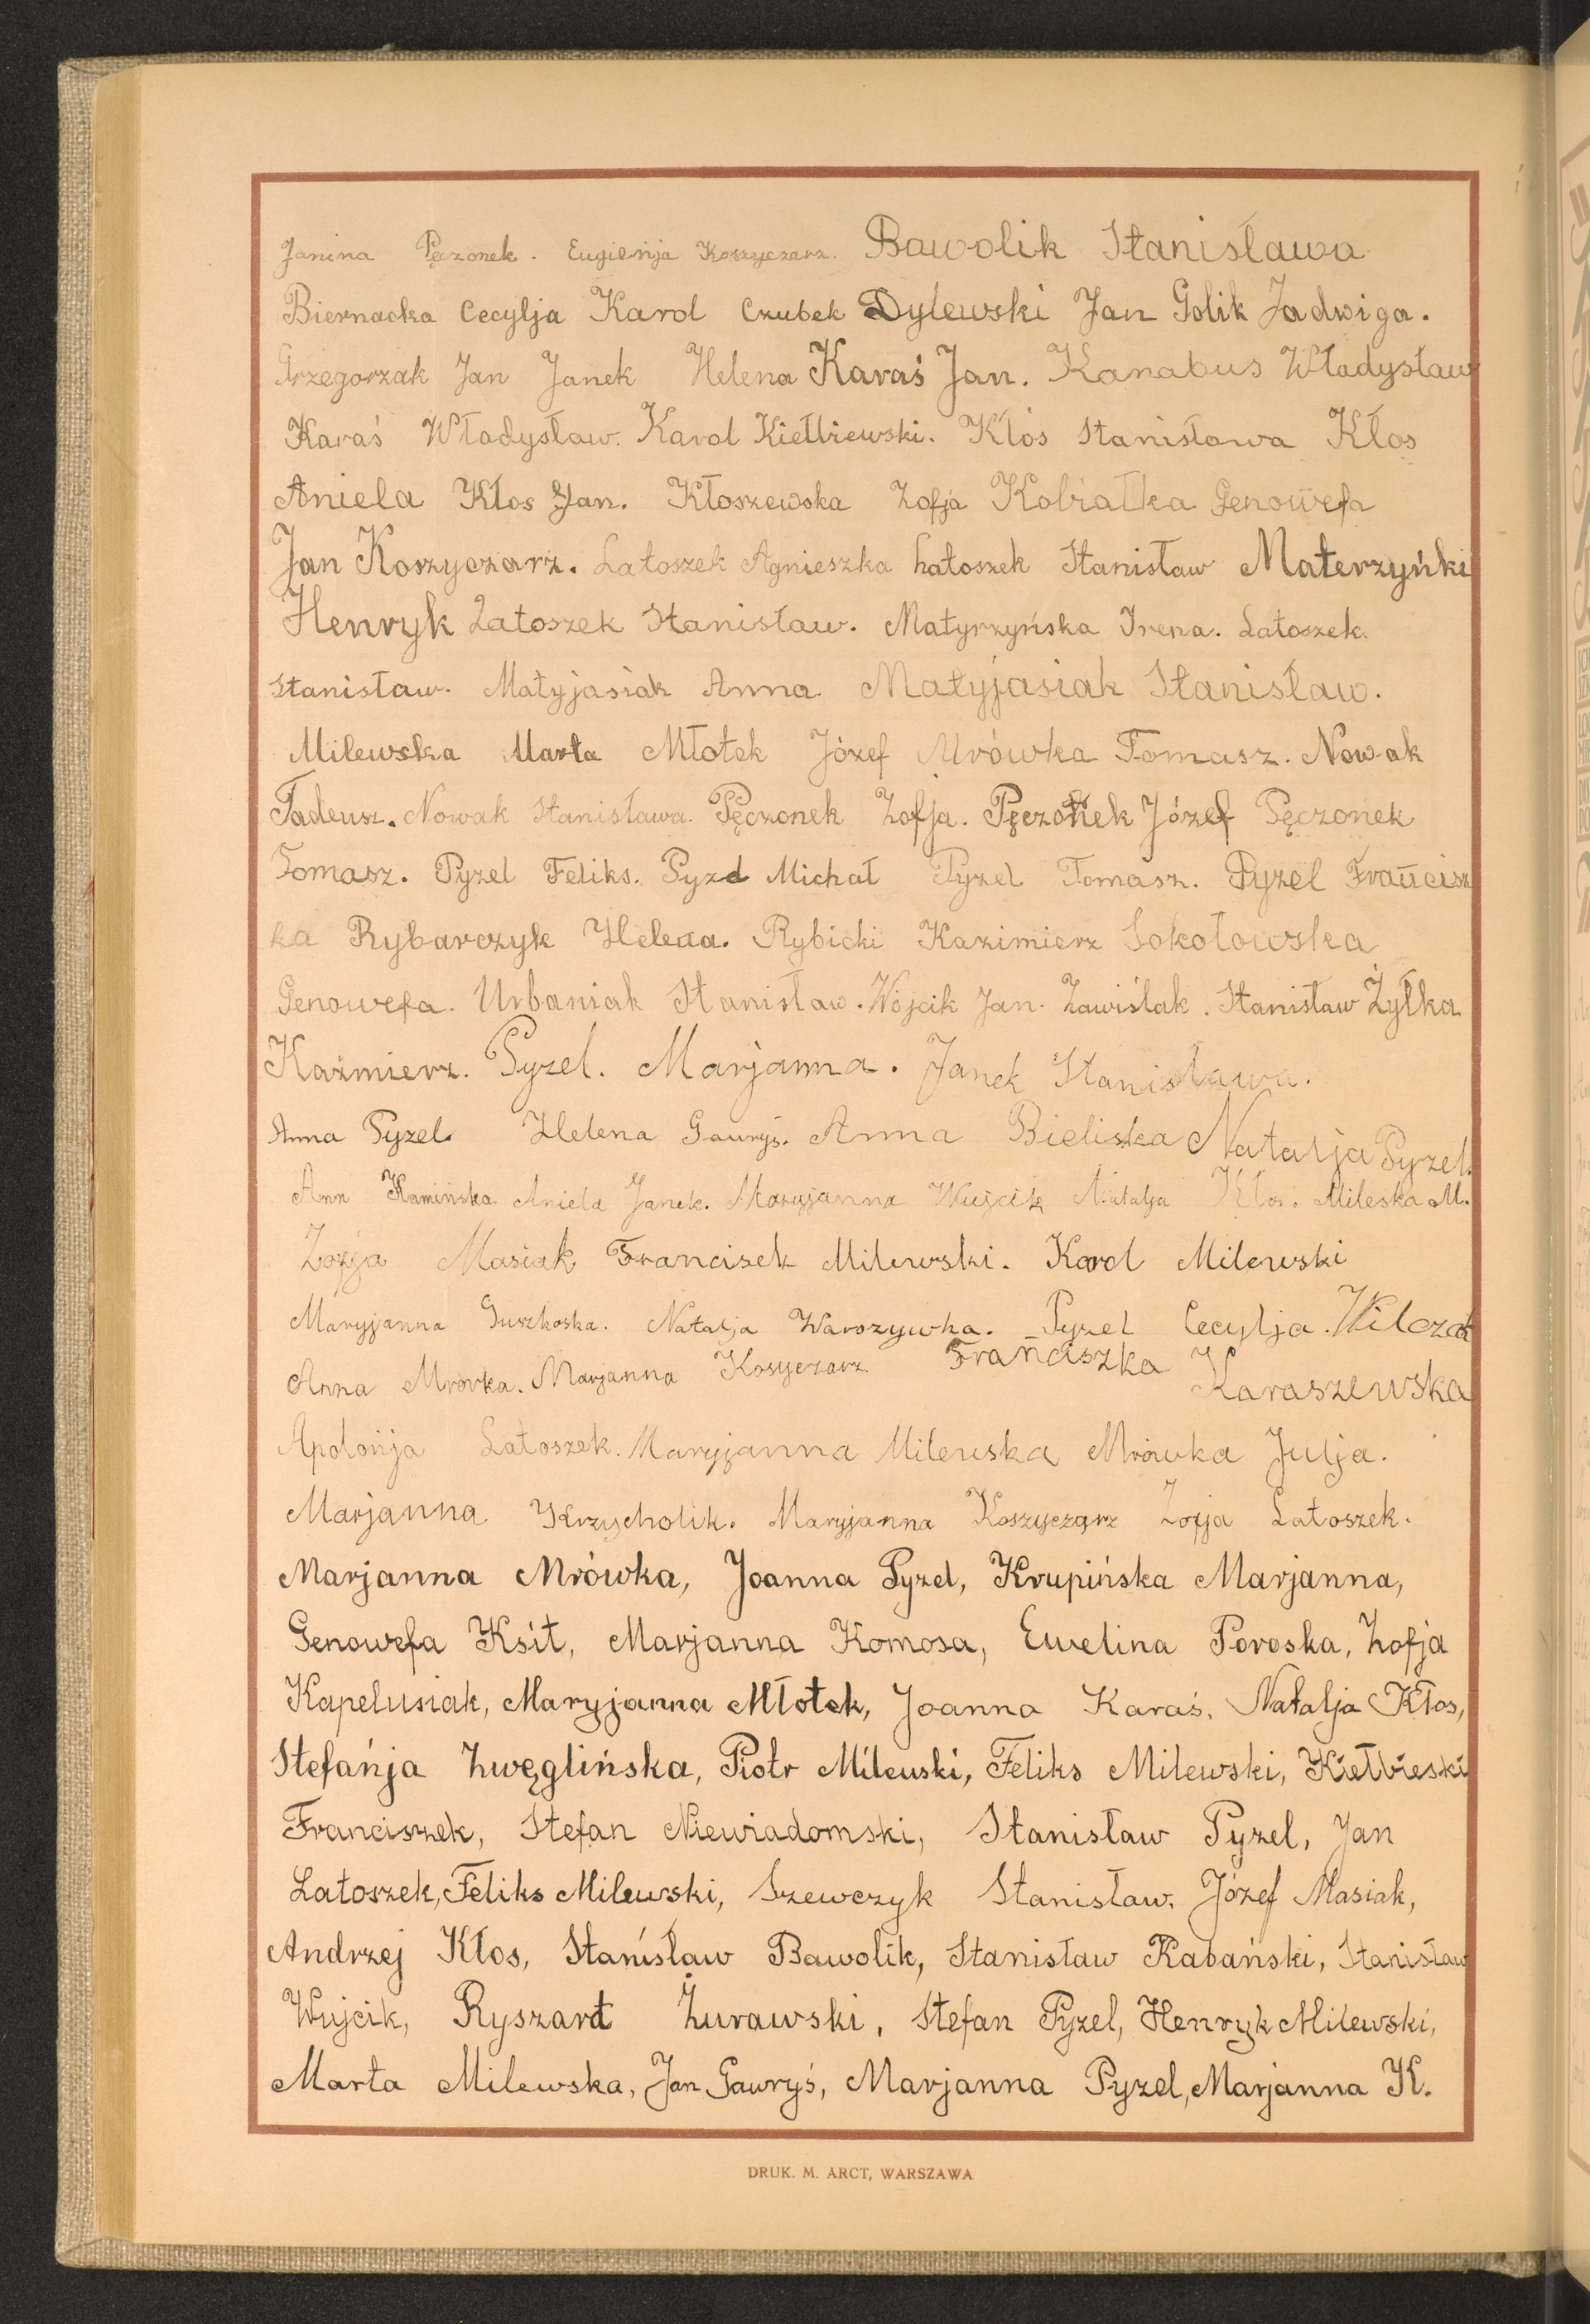 Janina Pęczonek. Eugienja Koszyczarz. Bawolik Stanisława
Biernacka Cecylja Karol Czubek Dylewski Jan Golik Jadwiga.
Grzegorzak Jan Janek Helena Karaś Jan. Kanabus Władysław
Karaś Władysław. Karol Kiełbiewski. Kłos Stanisława Kłos
Aniela Kłos Jan. Kłoszewska Zofja Kobiałka Genowefa
Jan Koszyczarz. Latoszek Agnieszka Latoszek Stanisław Materzyńki
Henryk Latoszek Stanisław. Matyrzyńska Irena. Latoszek
Stanisław. Matyjasiak Anna Matyjasiak Stanisław.
Milewska Marta Młotek Józef Mrówka Tomasz. Nowak
Tadeusz. Nowak Stanisława. Pęczonek Zofja. Pęczonek Józef Pęczonek
Tomasz. Pyzel Feliks. Pyzel Michał Pyzel Tomasz. Pyzel Francisz
ka Rybarczyk Helena. Rybicki Kazimierz Sokołowska
Genowefa. Urbaniak Stanisław. Wójcik Jan. Zawiślak. Stanisław Żyłka
Kaźmierz. Pyzel. Marjanna. Janek Stanisława.
Anna Pyzel. Helena Gawryś. Anna Bieliska Natalja Pyzel.
Ann Kamińska Aniela Janek. Maryjanna Wujcik Natalja Kłos. Mileska M.
Zofja Masiak Francisek Milewski. Karol Milewski
Maryjanna Guszkoska. Natalja Warszywka. Pyzel Cecylja. Wilczak
Anna Mrówka. Marjanna Kosyczarz Franciszka Karaszewska
Apolońja Latoszek. Maryjanna Milewska Mrówka Julja.
Marjanna Krzycholik. Maryjanna Koszyczarz Zofja Latoszek.
Marjanna Mrówka, Joanna Pyzel, Krupińska Marjanna,
Genowefa Ksit, Marjanna Komosa, Ewelina Poroska, Zofja
Kapelusiak, Maryjanna Młotek, Joanna Karaś, Natalja Kłos,
Stefańja Zwęglińska, Piotr Milewski, Feliks Milewski, Kiełbieski
Franciszek, Stefan Niewiadomski, Stanisław Pyzel, Jan
Latoszek, Feliks Milewski, Szewczyk Stanisław, Józef Masiak,
Andrzej Kłos, Stanisław Bawolik, Stanisław Rabański, Stanisław
Wujcik, Ryszart Żurawski, Stefan Pyzel, Henryk Milewski,
Marta Milewska, Jan Gawryś, Marjanna Pyzel, Marjanna K.
DRUK. M. ARCT, WARSZAWA